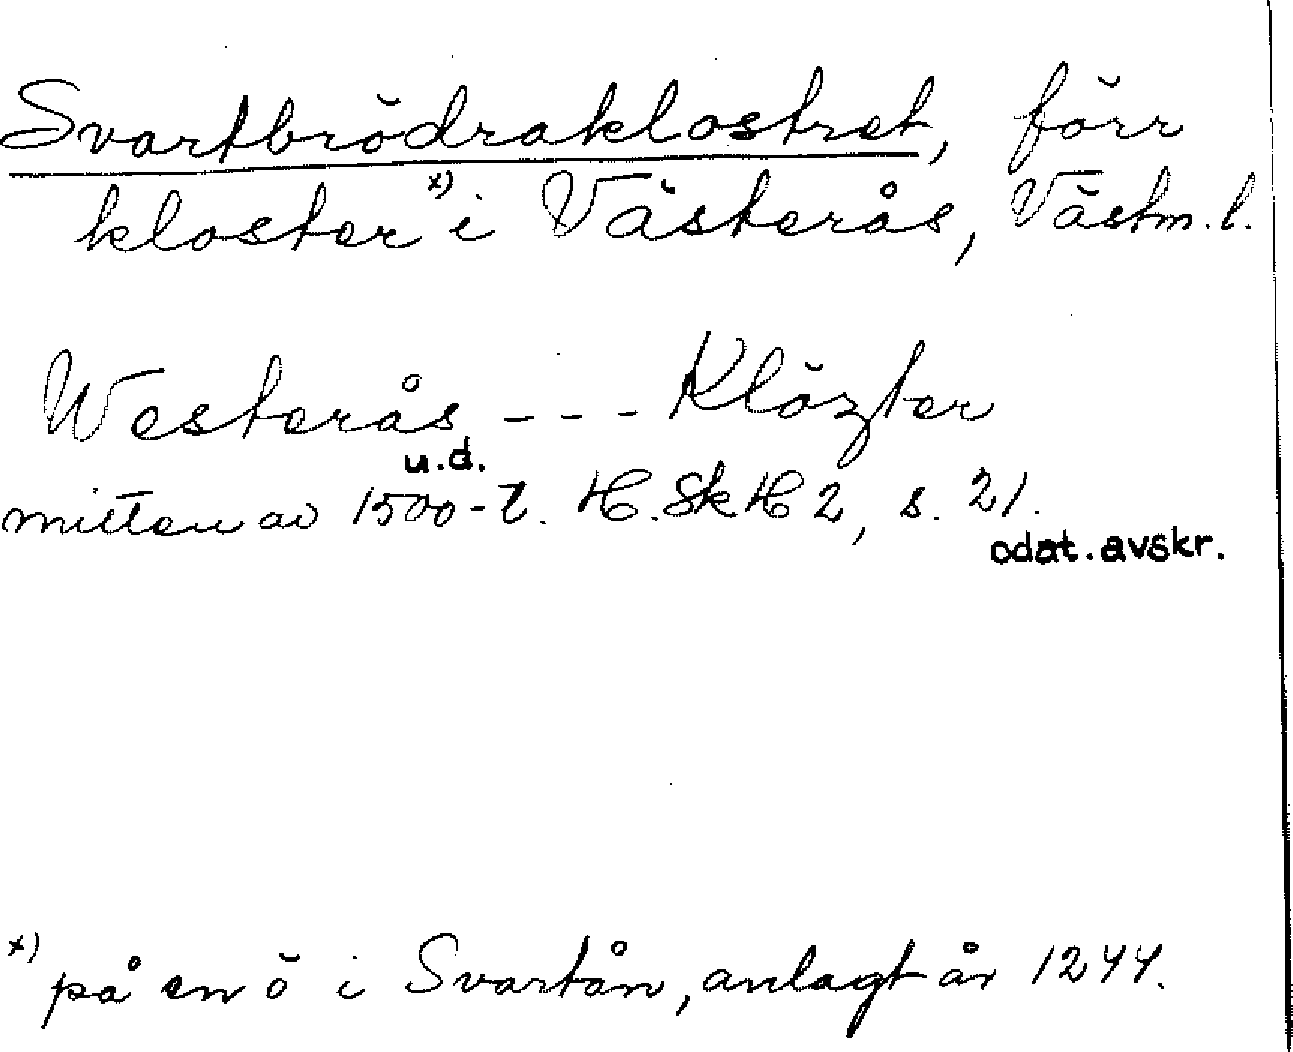 Svartbrödraklostret, förr
kloster x) i Västerås, Västm. l.
Westerås - - - Klözter
u.d.
mitten av 1500-t. H. Sk H 2, s. 21.
odat. avskr.
x) på en ö i Svartån, anlagt år 1244.